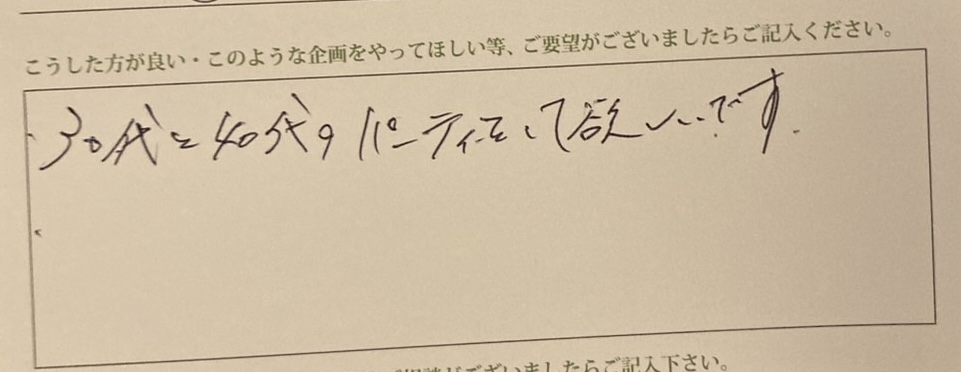 こうした方が良い・このような企画をやってほしい等、ご要望がございましたらご記入ください。
30代と40代のパーティをして欲しいです.
がございましたらご記入下さい。